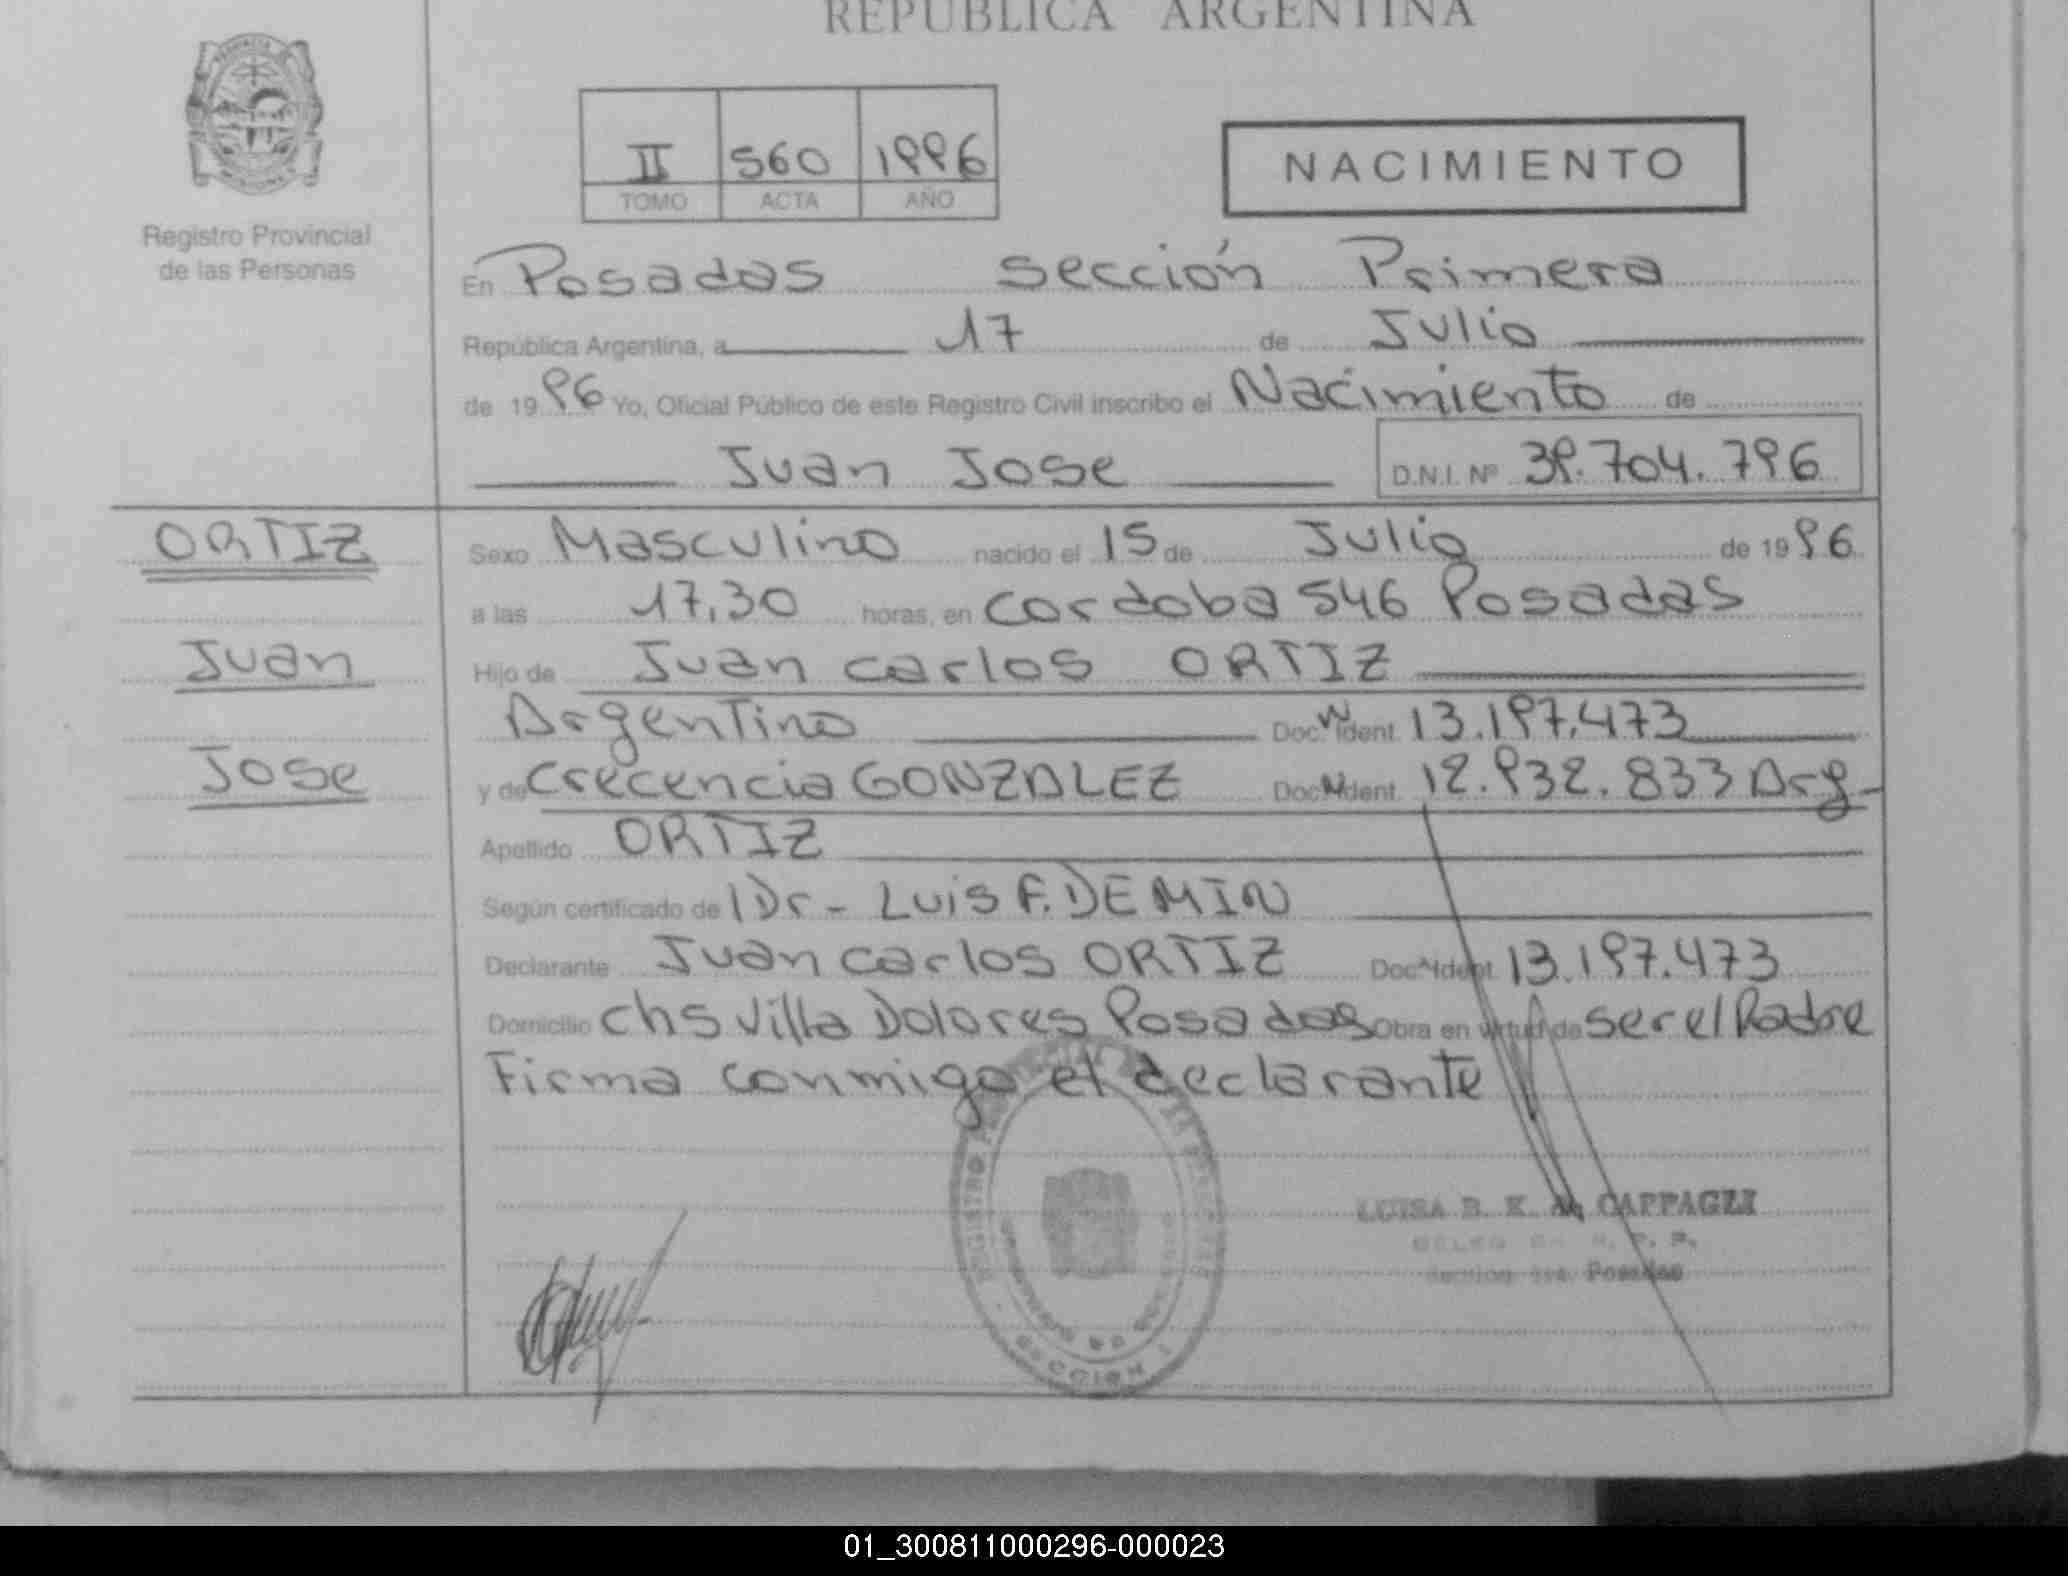 REPUBLICA ARGENTINA
PROVINCIA
MISIONES
Registro Provincial
de las Personas
II 560 1996
TOMO ACTA AÑO
NACIMIENTO
En Posadas sección Primera
República Argentina, a 17 de Julio
de 1996 Yo, Oficial Público de este Registro Civil inscribo el Nacimiento de
Juan Jose D.N.I. Nº 39.704.796
ORTIZ
Juan
Jose
Sexo Masculino nacido el 15 de Julio de 1996
a las 17,30 horas, en Cordoba 546 Posadas
Hijo de Juan Carlos ORTIZ
Argentino Doc. N Ident. 13.197.473
y de Crecencia GONZALEZ Doc. N Ident. 12.932.833 Arg-
Apellido ORTIZ
Según certificado de l Dr- Luis F. DEMIN
Declarante Juan Carlos ORTIZ Doc. N Ident. 13.197.473
Domicilio Chs Villa Dolores Posadas Obra en virtud de ser el Padre
Firma conmigo el declarante
REGISTRO
SECCION 1
LUISA B. K. CAPPAGLI
Posadas
01_300811000296-000023